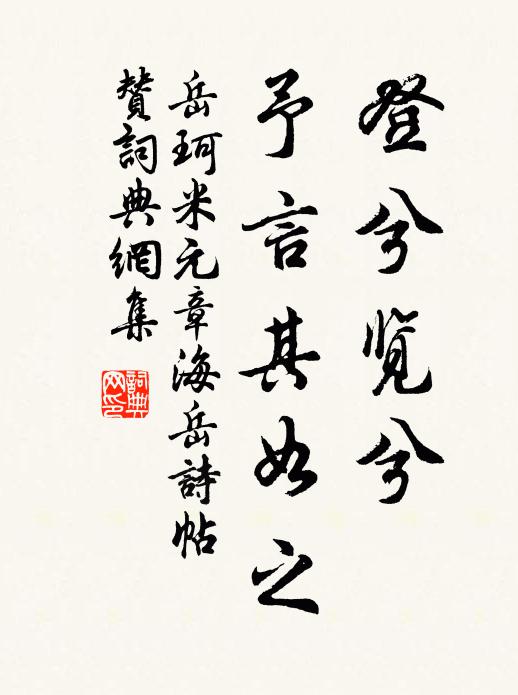 登兮览兮
予言其如之
岳珂米元章海岳詩帖
贊詞典網集
詞典
网印